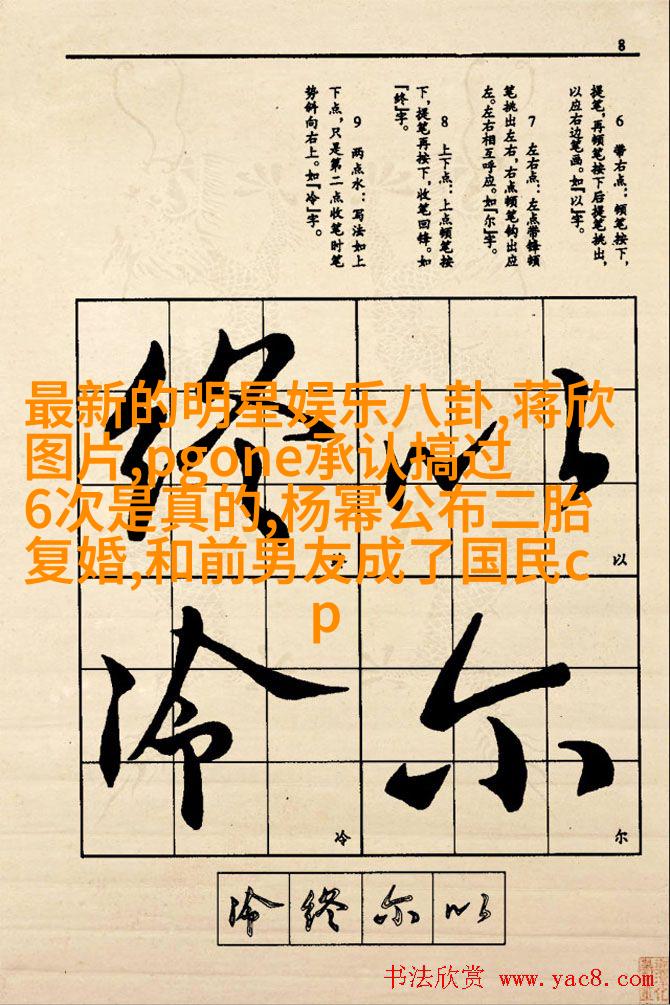 8
6 带右点：顿笔按下，
提笔，再顿笔按下后提笔挑出，
以应右边笔画。如『以』字。
7 左右点：左点带锋顿
笔挑出左右，右点顿笔钩出应
左。左右相互呼应。如『尔』字。
8 上下点：上点顿笔按
下，提笔再按下，收笔回锋。如
『终』字。
9 两点水：写法如上
下点，只是第二点收笔时笔
势斜向右上。如『冷』字。
最新的明星娱乐八卦,蒋欣
图片,pgone承认搞过
6次是真的,杨幂公布二胎
复婚,和前男友成了国民c
p
终 以
终 以
冷 尔
冷 尔
冷 终 尔 以
书法欣赏 www.yac8.com